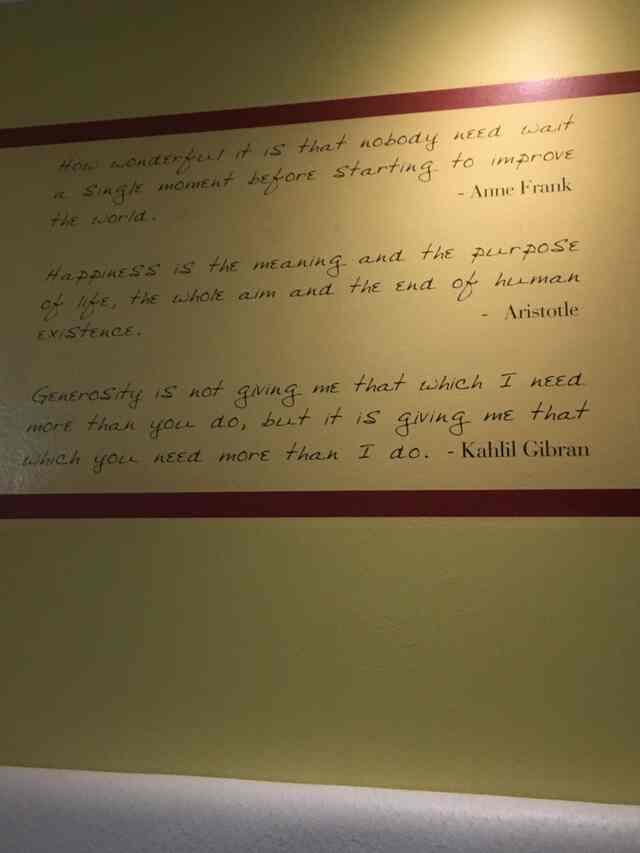 How wonderful it is that nobody need wait
a single moment before starting to improve
the world.
- Anne Frank
Happiness is the meaning and the purpose
of life, the whole aim and the end of human
existence.
- Aristotle
Generosity is not giving me that which I need
more than you do, but it is giving me that
which you need more than I do. - Kahlil Gibran